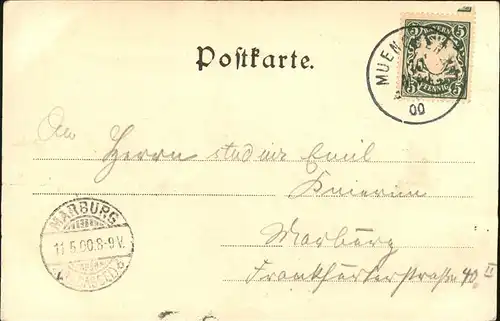 Postkarte.
BAYERN
5 5
PFENNIG
5 5
MUEN
00
An
Herrn stud. iur. Emil
Knierim
Marburg
Frankfurterstraße 40 II
MARBURG
11.5.00.8-9V.